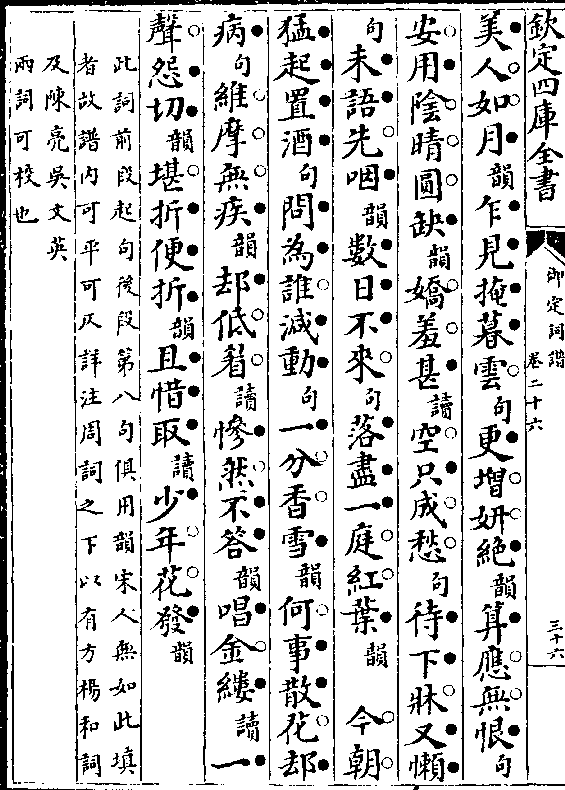 欽定四庫全書
御定詞譜
卷二十六
三十六
美人如月韻乍見掩暮雲句更增妍絶韻算應無恨句
安用陰晴圓缺韻嬌羞甚讀空只成愁句待下牀又懶
句未語先咽韻數日不來句落盡一庭紅葉韻　今朝
猛起置酒句問為誰減動句一分香雪韻何事散花却
病句維摩無疾韻却低眉讀慘然不答韻唱金縷讀一
聲怨切韻堪折便折韻且惜取讀少年花發韻
此詞前段起句後段第八句俱用韻宋人無如此填
者故譜内可平可仄詳注周詞之下以有方楊和詞
及陳亮吳文英
兩詞可校也